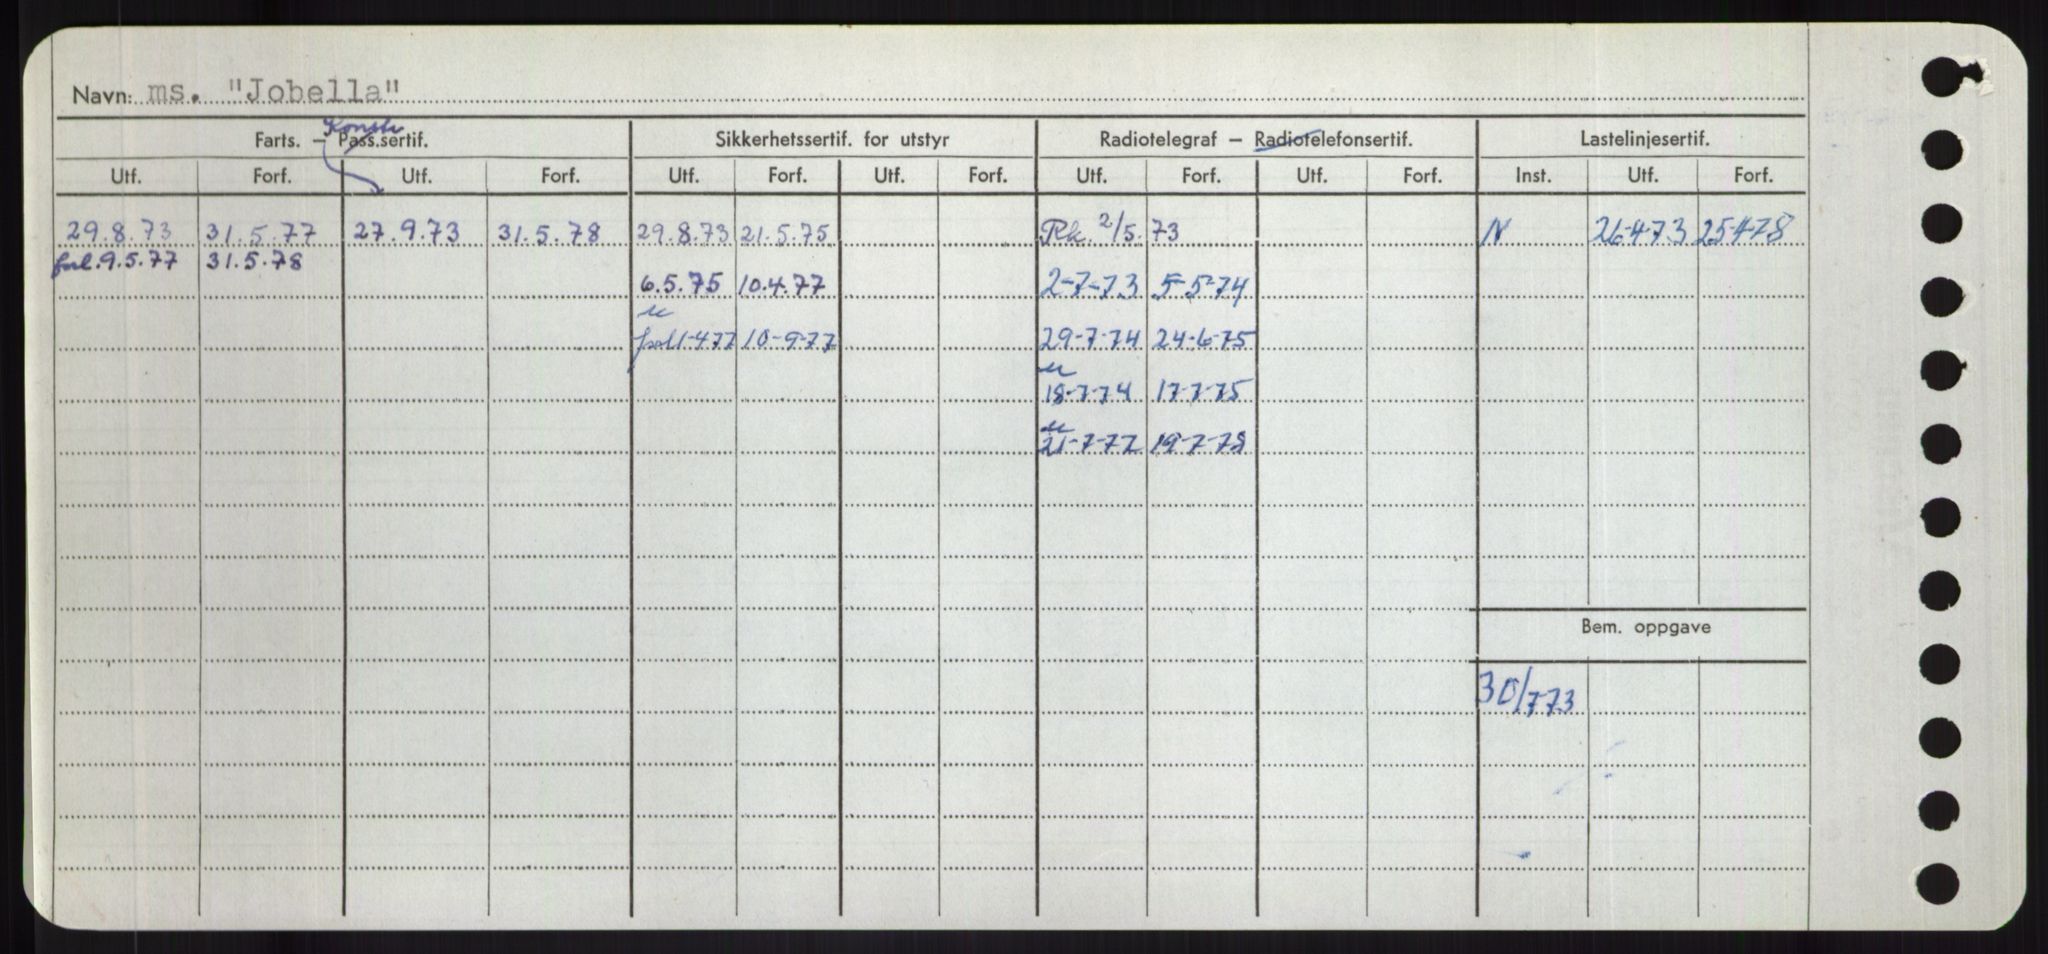 Navn: ms. "Jobella"
Konstr
Farts. — Pass.sertif. Sikkerhetssertif. for utstyr Radiotelegraf — Radiotelefonsertif. Lastelinjesertif.
Utf. Forf. Utf. Forf. Utf. Forf. Utf. Forf. Utf. Forf. Utf. Forf. Inst. Utf. Forf.
29.8.73 31.5.77 27.9.73 31.5.78 29.8.73 21.5.75 Rk. 2/5.73 N 26-4-73 25-4-78
forl.9.5.77 31.5.78
6.5.75 10.4.77 2-7-73 5-5-74
u
forl 1-477 10-9-77 29-7-74 24-6-75
u
18-7-74 17-7-75
u
21-7-77 19-7-78
Bem. oppgave
30/773